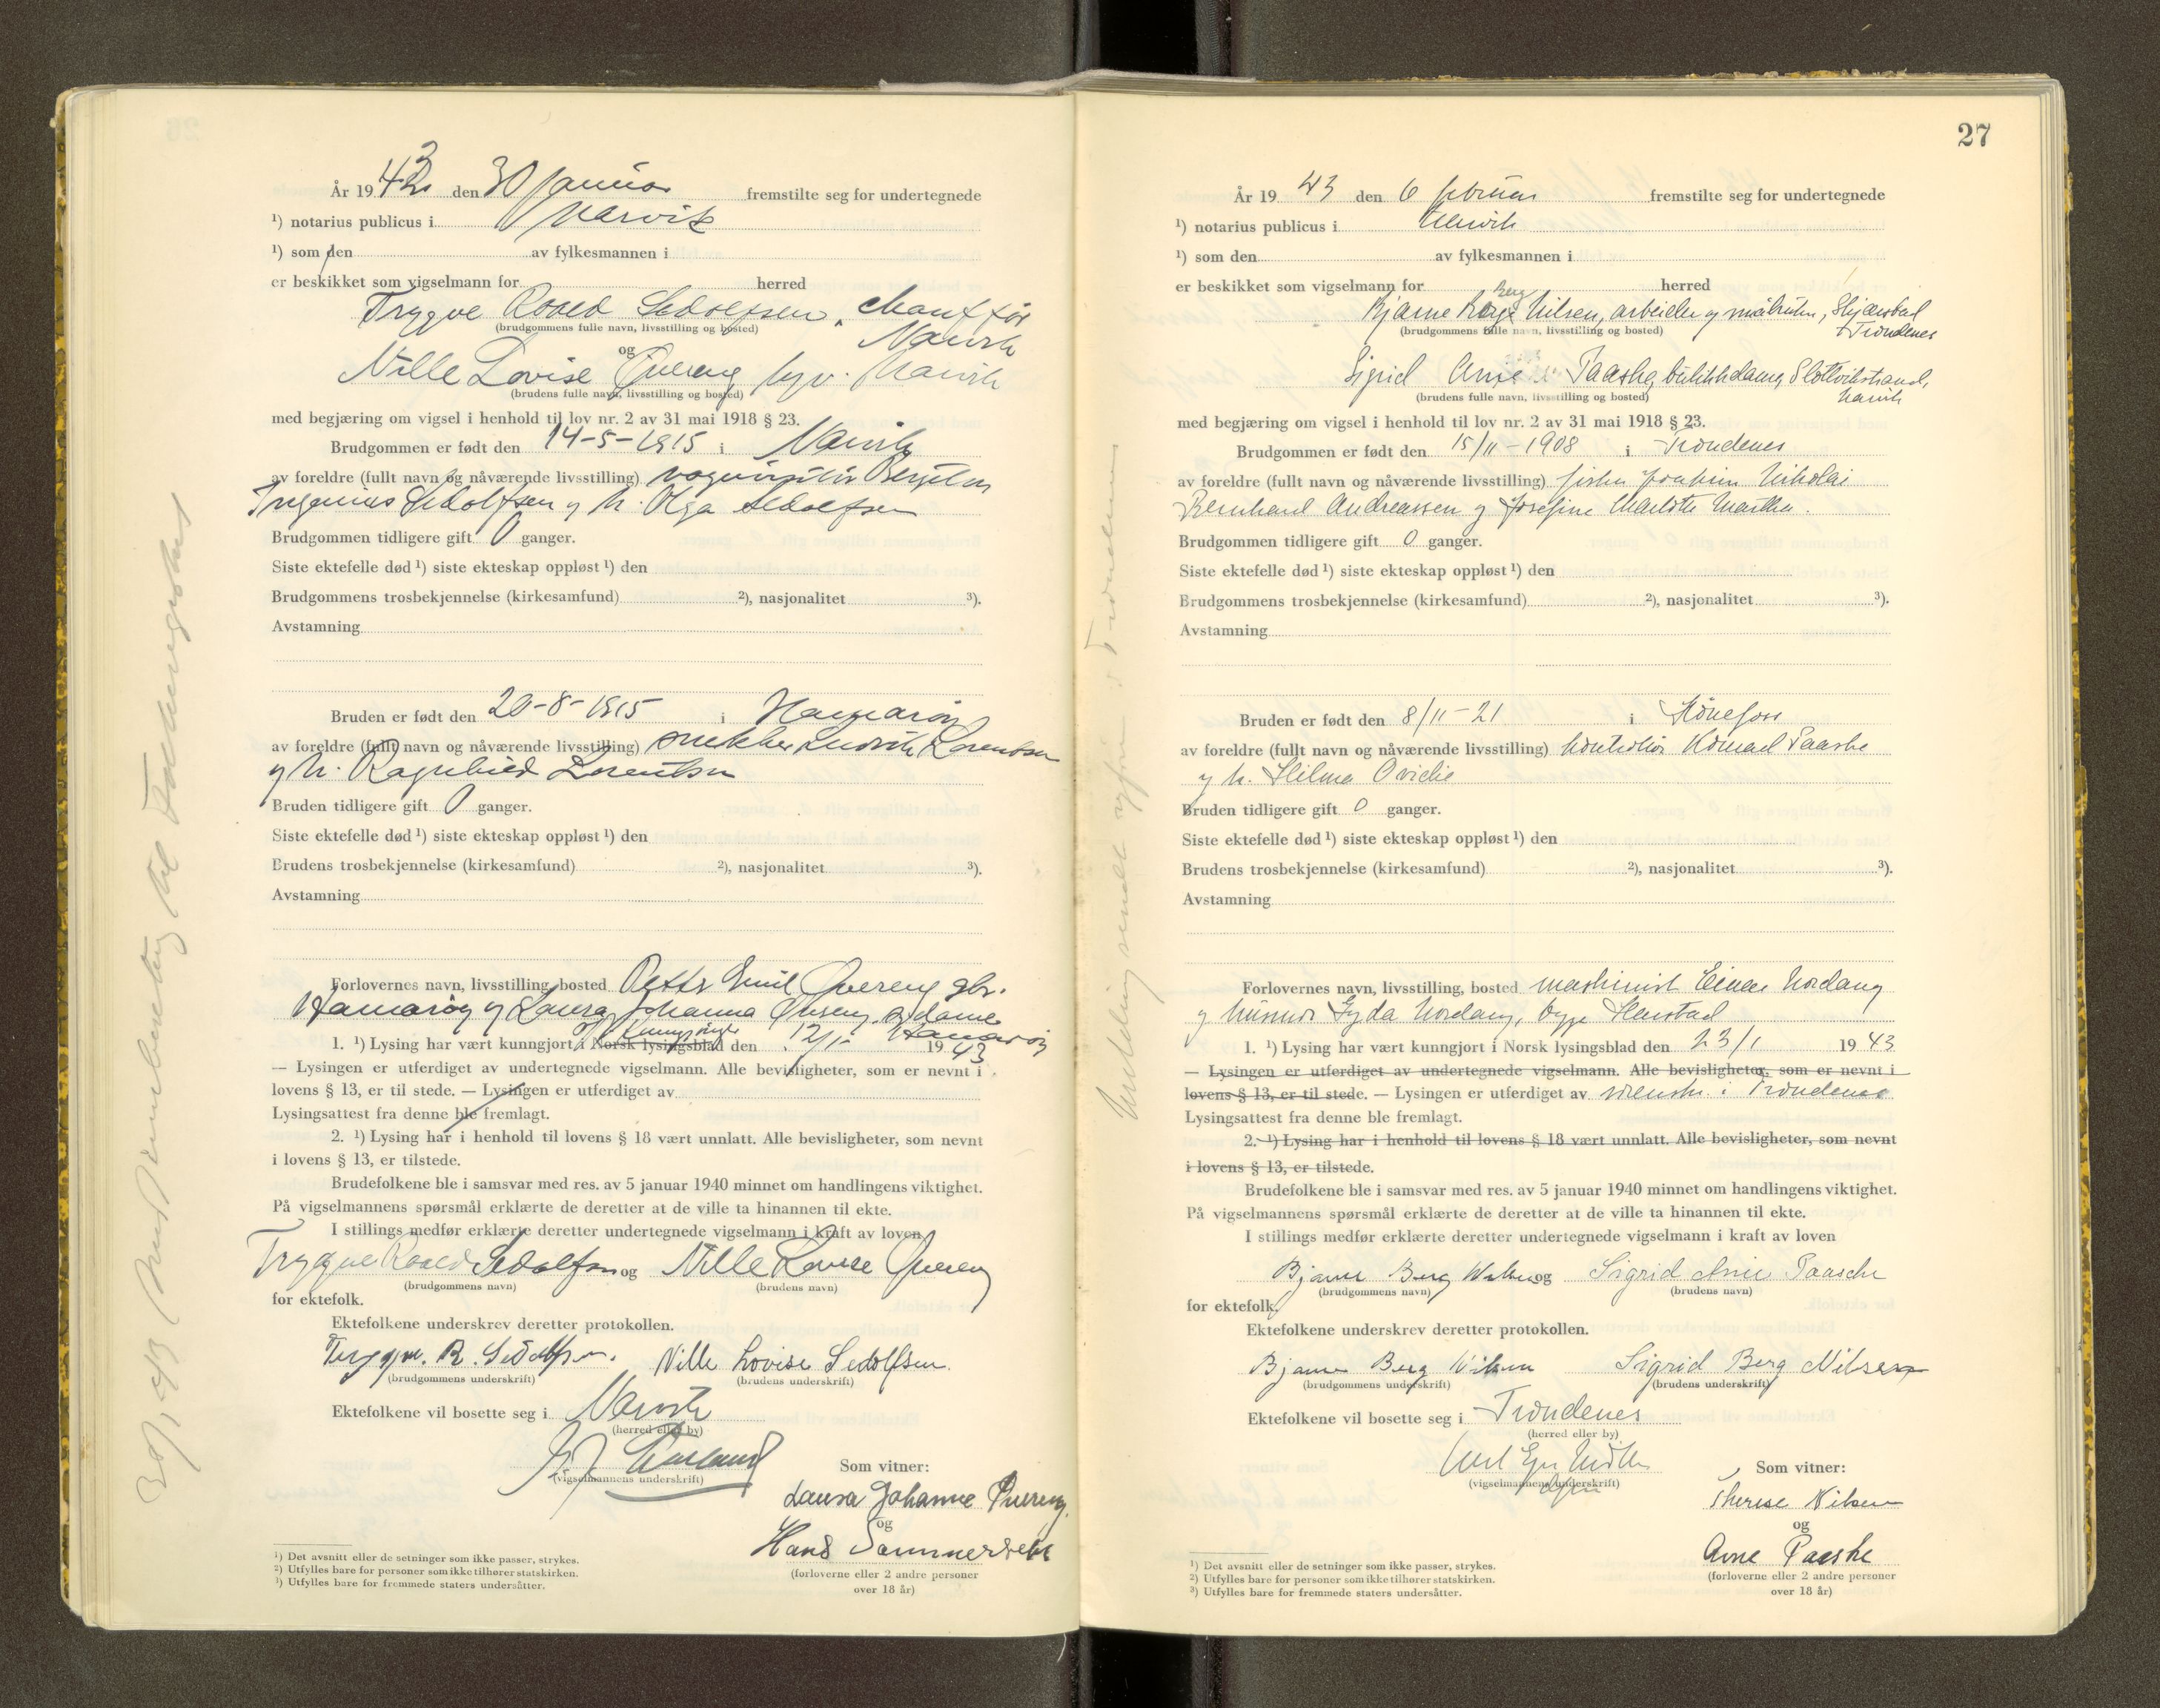 År 1943 den 30 januar fremstilte seg for undertegnede
¹) notarius publicus i Narvik
¹) som den av fylkesmannen i
er beskikket som vigselmann for herred
Trygve Roald Sedolfsen, chauffør
(brudgommens fulle navn, livsstilling og bosted)
Narvik
og
Nille Lovise Quereng Narvik
(brudens fulle navn, livsstilling og bosted)
med begjæring om vigsel i henhold til lov nr. 2 av 31 mai 1918 § 23.
Brudgommen er født den 14-5-1915 i Narvik
av foreldre (fullt navn og nåværende livsstilling)
Sedolfsen og h. Olga Sedolfsen
Brudgommen tidligere gift 0 ganger.
Siste ektefelle død ¹) siste ekteskap oppløst ¹) den
Brudgommens trosbekjennelse (kirkesamfund) ²), nasjonalitet ³).
Avstamning
Bruden er født den 20-8-1915 i Hamarøy
av foreldre (fullt navn og nåværende livsstilling) snekker Ludvik Lorentsen
og h. Ragnhild Lorentsen
Bruden tidligere gift 0 ganger.
Siste ektefelle død ¹) siste ekteskap oppløst ¹) den
Brudens trosbekjennelse (kirkesamfund) ²), nasjonalitet ³).
Avstamning
Forlovernes navn, livsstilling, bosted Emil Quereng gbr.
Hamarøy og Laura Johanna Quereng
Hamarøy
1. ¹) Lysing har vært kunngjort i Norsk lysingsblad den 12/1- 1943
— Lysingen er utferdiget av undertegnede vigselmann. Alle bevisligheter, som er nevnt i
lovens § 13, er til stede. — Lysingen er utferdiget av
Lysingsattest fra denne ble fremlagt.
2. ¹) Lysing har i henhold til lovens § 18 vært unnlatt. Alle bevisligheter, som nevnt
i lovens § 13, er tilstede.
Brudefolkene ble i samsvar med res. av 5 januar 1940 minnet om handlingens viktighet.
På vigselmannens spørsmål erklærte de deretter at de ville ta hinannen til ekte.
I stillings medfør erklærte deretter undertegnede vigselmann i kraft av loven
Trygve Roald Sedolfsen og Nille Lovise Quereng
(brudgommens navn) (brudens navn)
for ektefolk.
Ektefolkene underskrev deretter protokollen.
Trygve. R. Sedolfsen. Nille Lovise Sedolfsen.
(brudgommens underskrift) (brudens underskrift)
Ektefolkene vil bosette seg i Narvik
(herred eller by)
(vigselmannens underskrift)
Som vitner:
Laura Johanne Quereng.
og
Hans
(forloverne eller 2 andre personer
over 18 år)
¹) Det avsnitt eller de setninger som ikke passer, strykes.
²) Utfylles bare for personer som ikke tilhører statskirken.
³) Utfylles bare for fremmede staters undersåtter.
27
År 1943 den 6 februar fremstilte seg for undertegnede
¹) notarius publicus i Narvik
¹) som den av fylkesmannen i
er beskikket som vigselmann for herred
Bjarne Berg Nilsen, arbeider
Trondenes
(brudgommens fulle navn, livsstilling og bosted)
Sigrid Anie Paaske, butikkdame,
Narvik
(brudens fulle navn, livsstilling og bosted)
med begjæring om vigsel i henhold til lov nr. 2 av 31 mai 1918 § 23.
Brudgommen er født den 15/11-1908 i Trondenes
av foreldre (fullt navn og nåværende livsstilling) fisker Joakim Nikolai
Bernhard Andreassen og Josefine Charlotte Martha.
Brudgommen tidligere gift 0 ganger.
Siste ektefelle død ¹) siste ekteskap oppløst ¹) den
Brudgommens trosbekjennelse (kirkesamfund) ²), nasjonalitet ³).
Avstamning
Bruden er født den 8/11-21 i Hønefoss
av foreldre (fullt navn og nåværende livsstilling) kontrollør Paaske
og h. Hilma Ovidie
Bruden tidligere gift 0 ganger.
Siste ektefelle død ¹) siste ekteskap oppløst ¹) den
Brudens trosbekjennelse (kirkesamfund) ²), nasjonalitet ³).
Avstamning
Forlovernes navn, livsstilling, bosted maskinist Einar Nordang
og hustru Gyda Nordang,
1. ¹) Lysing har vært kunngjort i Norsk lysingsblad den 23/1 1943
— Lysingen er utferdiget av undertegnede vigselmann. Alle bevisligheter, som er nevnt i
lovens § 13, er til stede. — Lysingen er utferdiget av i Trondenes
Lysingsattest fra denne ble fremlagt.
2. ¹) Lysing har i henhold til lovens § 18 vært unnlatt. Alle bevisligheter, som nevnt
i lovens § 13, er tilstede.
Brudefolkene ble i samsvar med res. av 5 januar 1940 minnet om handlingens viktighet.
På vigselmannens spørsmål erklærte de deretter at de ville ta hinannen til ekte.
I stillings medfør erklærte deretter undertegnede vigselmann i kraft av loven
Bjarne Berg Nilsen og Sigrid Anie Paaske
(brudgommens navn) (brudens navn)
for ektefolk.
Ektefolkene underskrev deretter protokollen.
Bjarne Berg Nilsen Sigrid Berg Nilsen
(brudgommens underskrift) (brudens underskrift)
Ektefolkene vil bosette seg i Trondenes
(herred eller by)
(vigselmannens underskrift)
Som vitner:
Therese Nilsen
og
Arne Paaske
(forloverne eller 2 andre personer
over 18 år)
¹) Det avsnitt eller de setninger som ikke passer, strykes.
²) Utfylles bare for personer som ikke tilhører statskirken.
³) Utfylles bare for fremmede staters undersåtter.